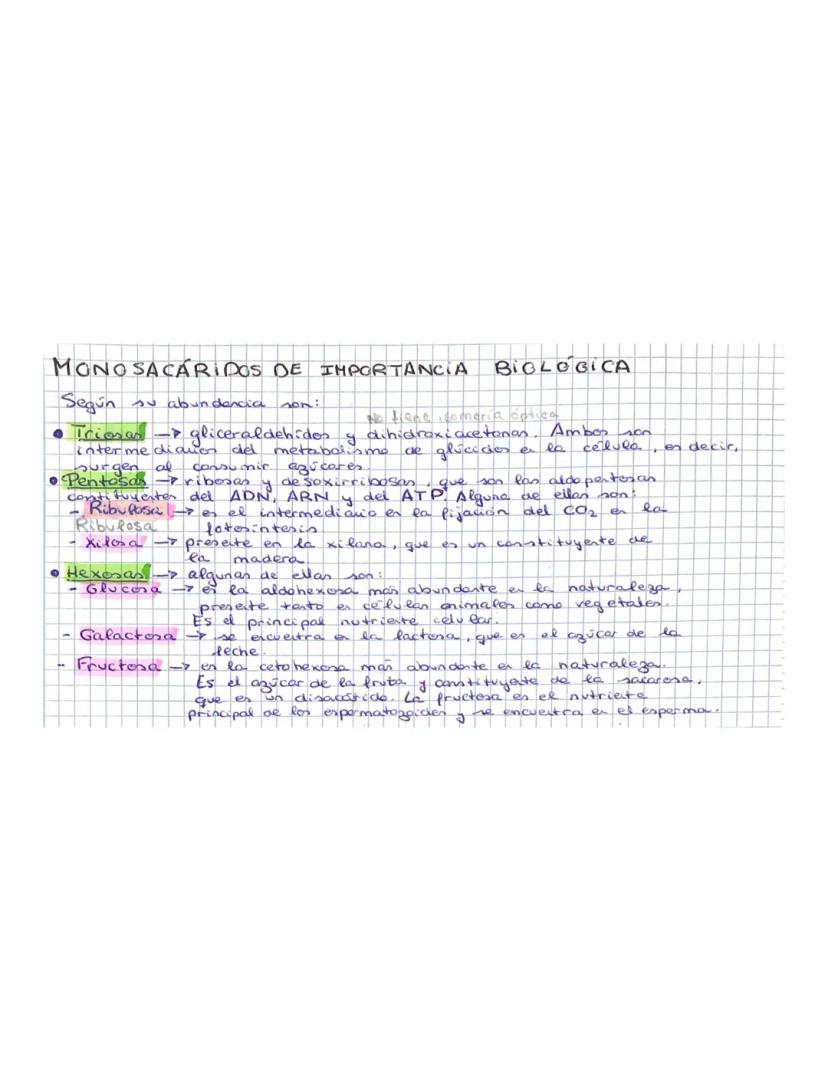 MONOSACÁRIDOS DE IMPORTANCIA BIOLÓGICA
Según su abundancia son:
No tiene isomería óptica
• Triosas → gliceraldehídos y dihidroxiacetonas. Ambos son
intermediarios del metabolismo de glúcidos en la célula, es decir,
surgen al consumir azúcares.
• Pentosas → ribosas y desoxirribosas, que son las aldopentosas
constituyentes del ADN, ARN y del ATP. Alguna de ellas son:
- Ribulosa → es el intermediario en la fijación del CO2 en la
Ribulosa fotosíntesis
- Xilosa → presente en la xilana, que es un constituyente de
la madera
• Hexosas → algunas de ellas son:
- Glucosa → es la aldohexosa más abundante en la naturaleza,
presente tanto en células animales como vegetales.
Es el principal nutriente celular.
- Galactosa → se encuentra en la lactosa, que es el azúcar de la
leche.
- Fructosa → es la cetohexosa más abundante en la naturaleza.
Es el azúcar de la fruta y constituyente de la sacarosa,
que es un disacárido. La fructosa es el nutriente
principal de los espermatozoides y se encuentra en el esperma.